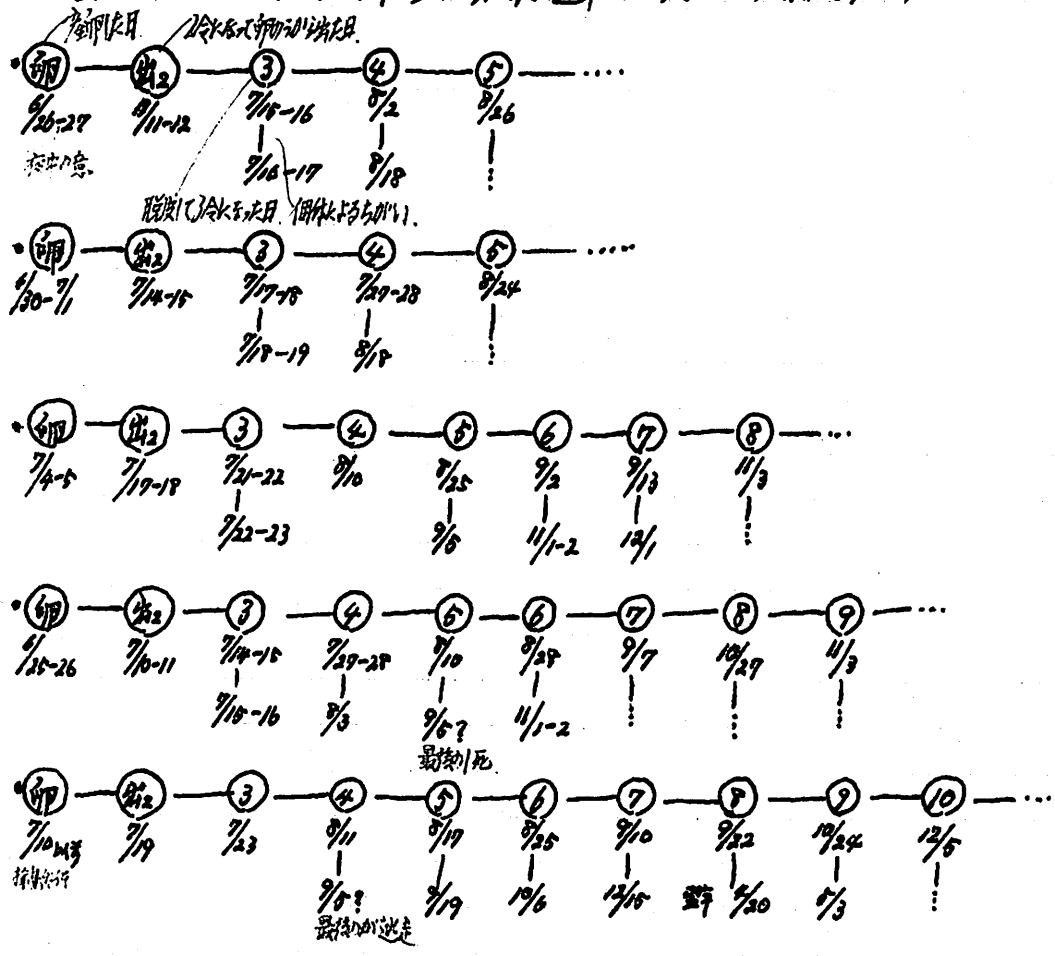 産卵した日 2令になって卵のうから出た日
卵 出2 3 4 5 ‥‥
6/26-27 7/11-12 7/15-16 8/2 8/26
7/16-17 8/18
夜中の意
脱皮して3令になった日 個体によるちがい.
卵 出2 3 4 5 ‥‥
6/30-7/1 7/14-15 7/17-18 7/27-28 8/24
7/18-19 8/18
卵 出2 3 4 5 6 7 8 …
7/4-5 7/17-18 7/21-22 8/10 8/25 9/2 9/13 11/3
7/22-23 9/5 11/1-2 12/1
卵 出2 3 4 5 6 7 8 9 …
6/25-26 7/10-11 7/14-15 7/27-28 8/10 8/28 9/7 10/27 11/3
7/15-16 8/3 9/5? 11/1-2
最後の1死
卵 出2 3 4 5 6 7 8 9 10 …
7/10以前 7/19 7/23 8/11 8/17 8/25 9/10 9/22 10/24 12/5
9/5? 9/19 10/6 12/15 翌年 4/20 5/3
最後のが逃走